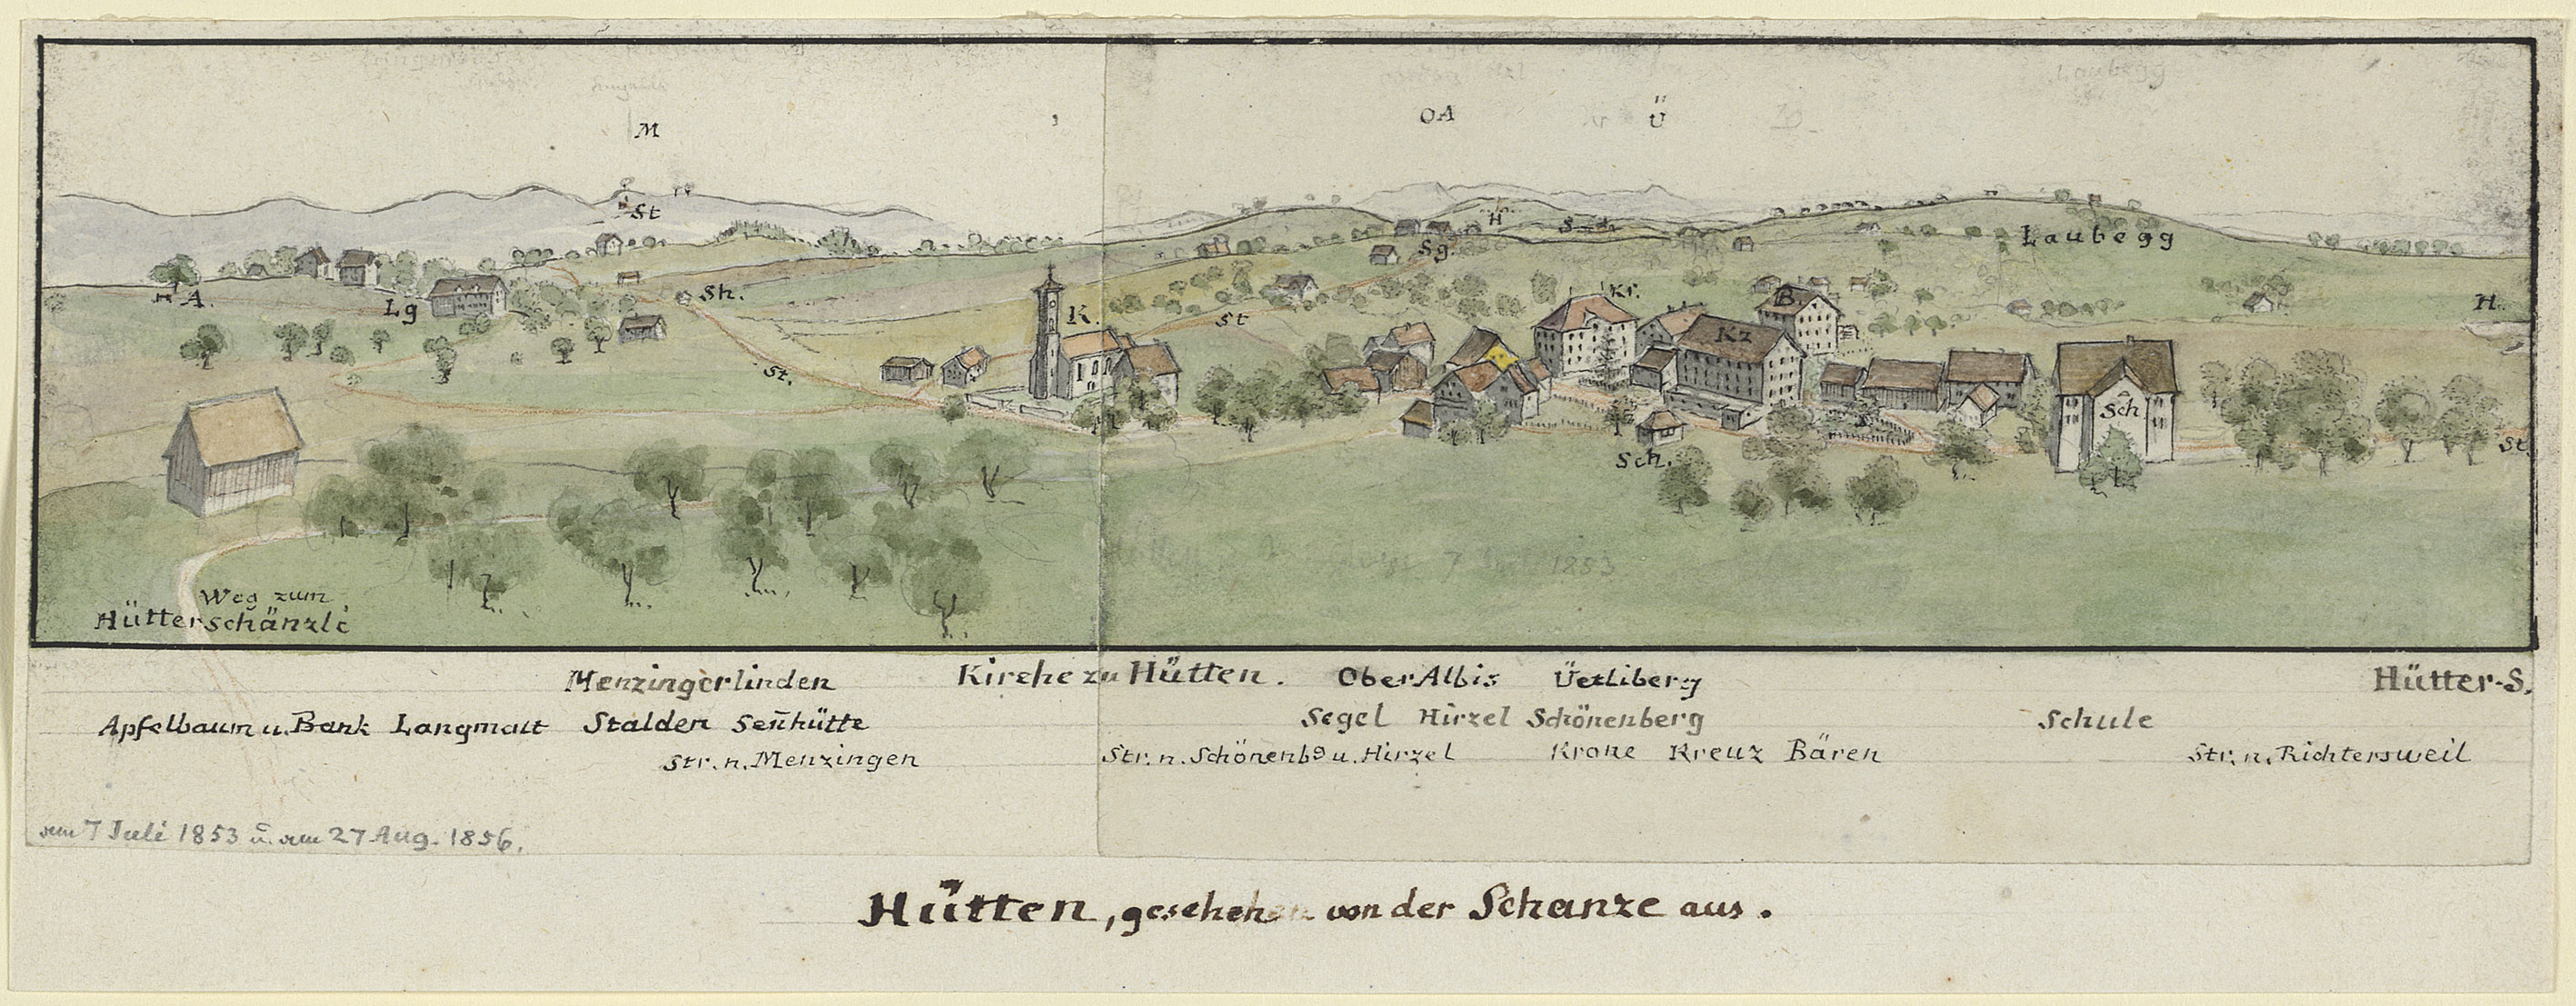 Laubegg
M
OA Ü
St
H
Sg.
Laubegg
A.
Lg
Sh.
K.
St
Kr.
B.
Kz
H.
St.
Sch
Sch.
St.
7 Juli 1853
Weg zum
Hütterschänzli
Menzingerlinden Kirche zu Hütten. OberAlbis Üetliberg Hütter-S.
Apfelbaum u. Bank Langmatt Stalden Señhütte Segel Hirzel Schönenberg Schule
Str. n. Menzingen Str. n. Schönenbg u. Hirzel Krone Kreuz Bären Str. n. Richtersweil
am 7 Juli 1853 u. am 27 Aug. 1856.
Hütten, gesehen von der Schanze aus.